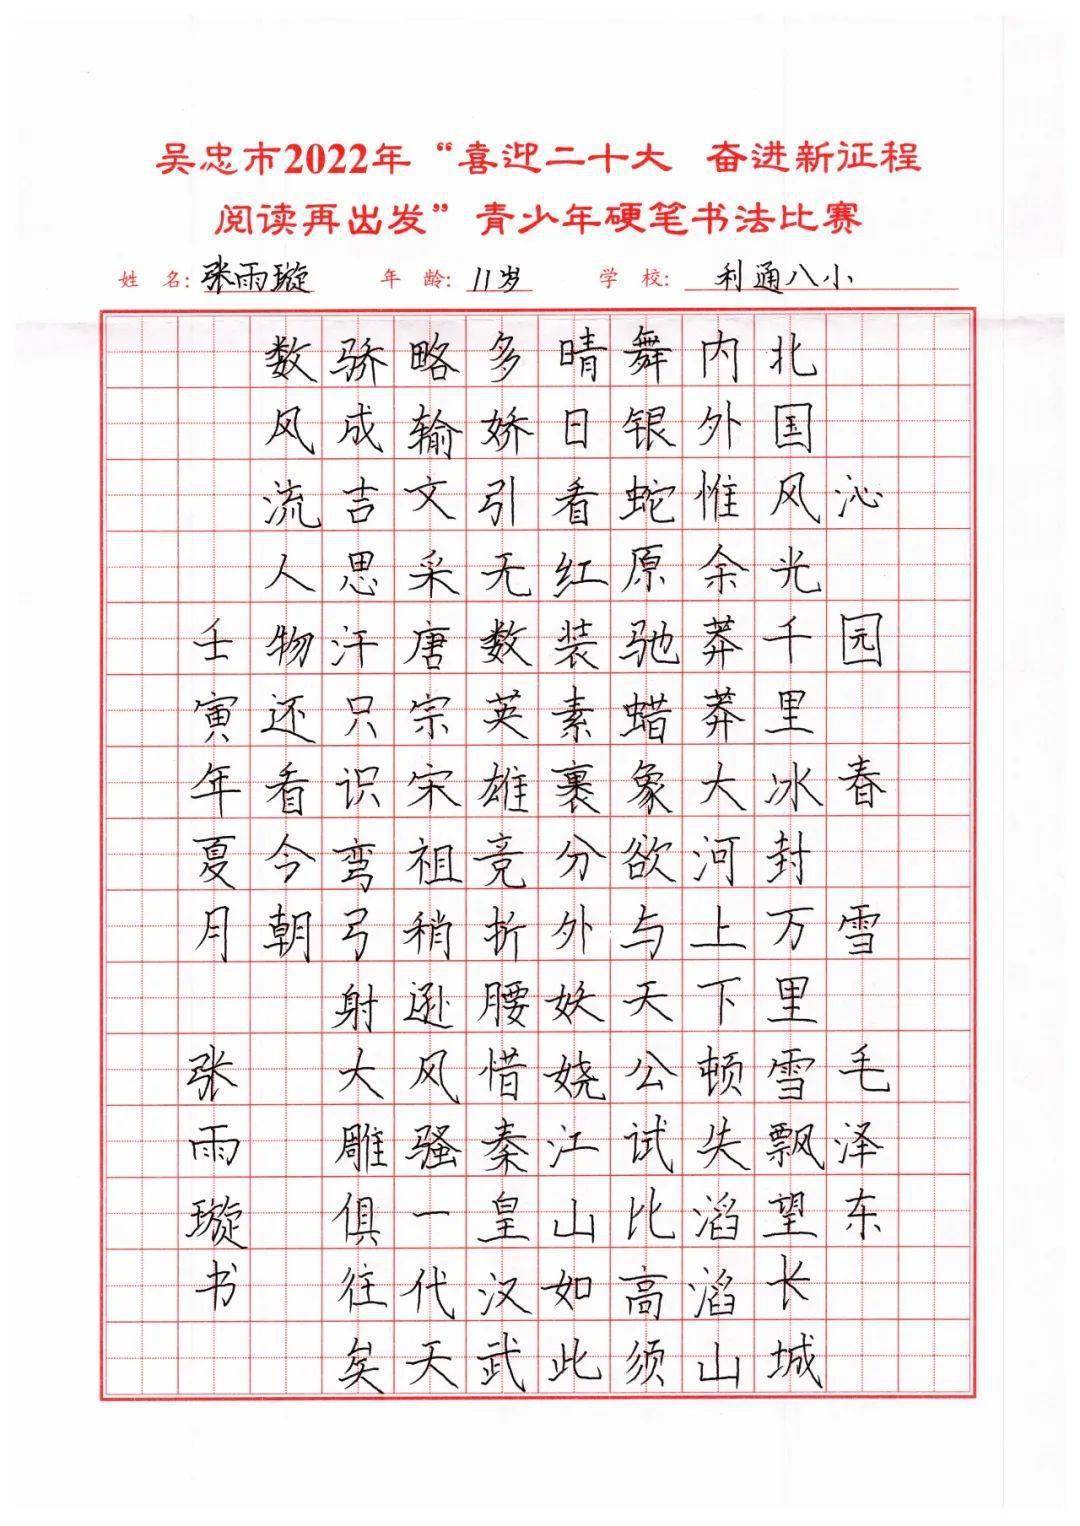 吴忠市2022年“喜迎二十大 奋进新征程
阅读再出发”青少年硬笔书法比赛
姓 名: 张雨璇 年 龄: 11岁 学 校: 利通八小
沁园春 雪 毛泽东
北国风光千里冰封万里雪飘望长城
内外惟余莽莽大河上下顿失滔滔山
舞银蛇原驰蜡象欲与天公试比高须
晴日看红装素裹分外妖娆江山如此
多娇引无数英雄竞折腰惜秦皇汉武
略输文采唐宗宋祖稍逊风骚一代天
骄成吉思汗只识弯弓射大雕俱往矣
数风流人物还看今朝
壬寅年夏月 张雨璇书